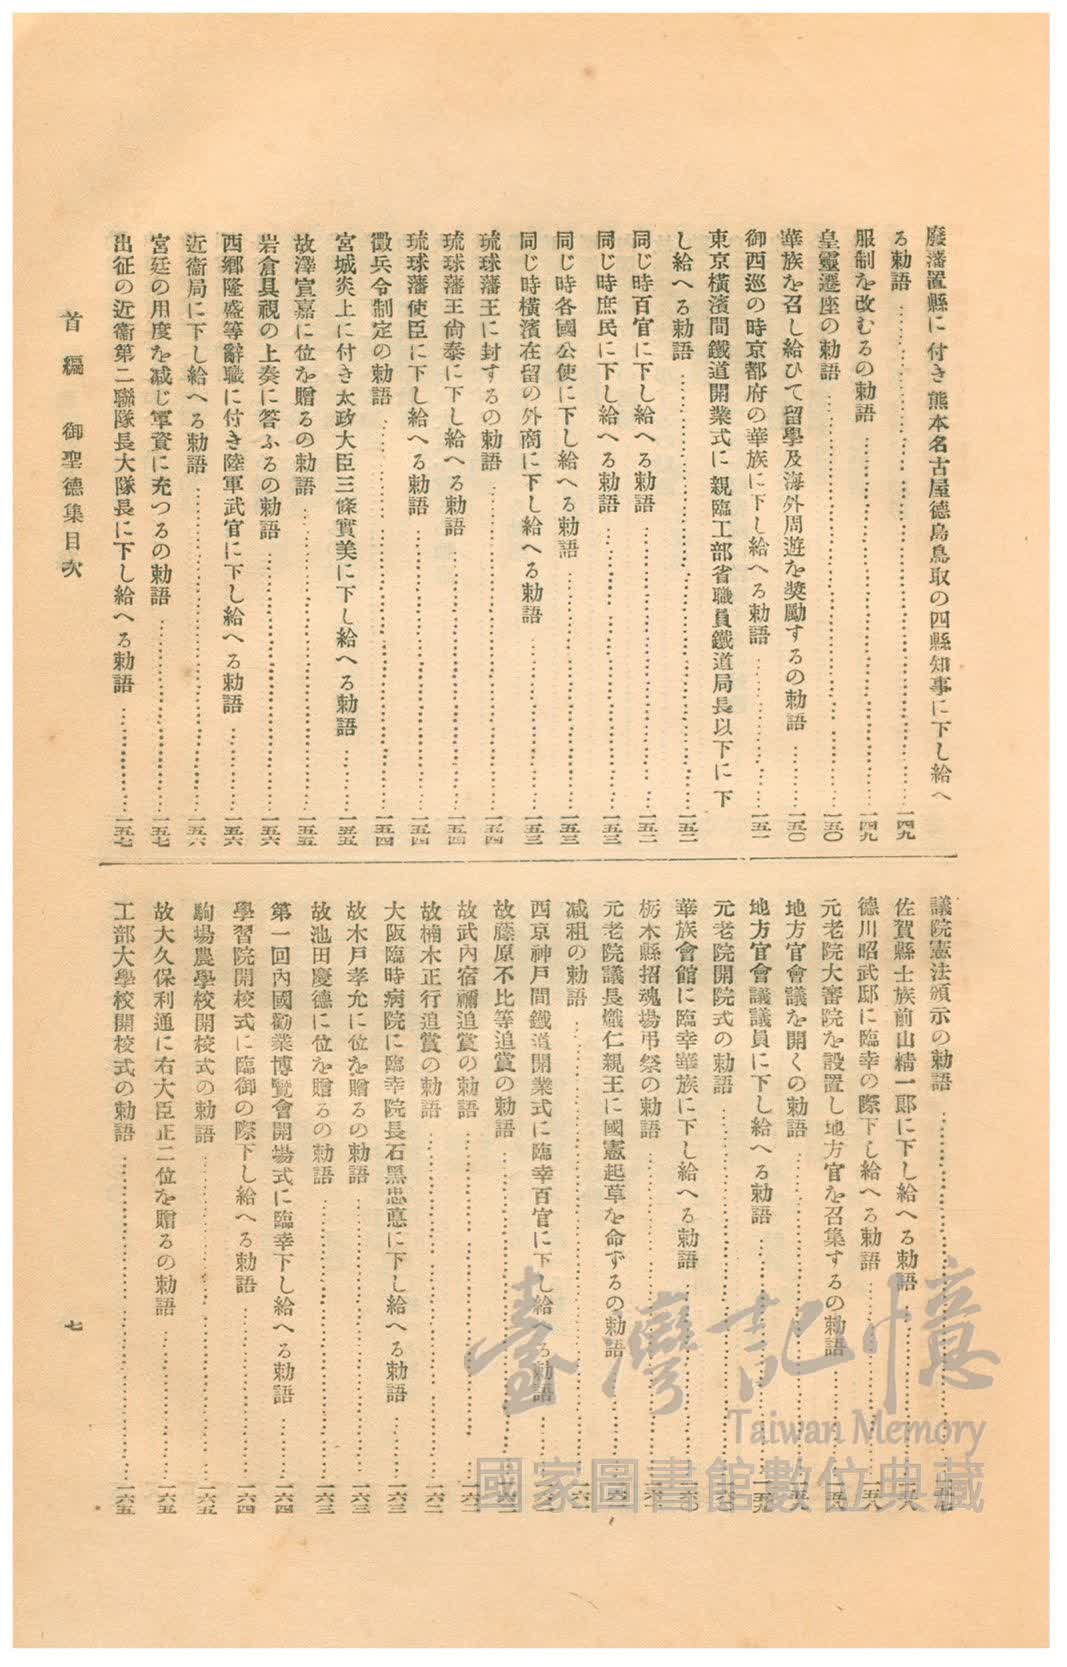 廢藩置縣に付き熊本名古屋德島鳥取の四縣知事に下し給へ
る勅語……一四九
服制を改むるの勅語……一四九
皇靈遷座の勅語……一五〇
華族を召し給ひて留學及海外周遊を奬勵するの勅語……一五〇
御西巡の時京都府の華族に下し給へる勅語……一五一
東京橫濱間鐵道開業式に親臨工部省職員鐵道局長以下に下
し給へる勅語……一五二
同じ時百官に下し給へる勅語……一五二
同じ時庶民に下し給へる勅語……一五三
同じ時各國公使に下し給へる勅語……一五三
同じ時橫濱在留の外商に下し給へる勅語……一五三
琉球藩王に封するの勅語……一五四
琉球藩王尙泰に下し給へる勅語……一五四
琉球藩使臣に下し給へる勅語……一五四
徵兵令制定の勅語……一五四
宮城炎上に付き太政大臣三條實美に下し給へる勅語……一五五
故澤宣嘉に位を贈るの勅語……一五五
岩倉具視の上奏に答ふるの勅語……一五六
西鄕隆盛等辭職に付き陸軍武官に下し給へる勅語……一五六
近衞局に下し給へる勅語……一五六
宮廷の用度を减じ軍資に充つるの勅語……一五七
出征の近衞第二聯隊長大隊長に下し給へる勅語……一五七
議院憲法頒示の勅語……
佐賀縣士族前山精一郞に下し給へる勅語……
德川昭武邸に臨幸の際下し給へる勅語……
元老院大審院を設置し地方官を召集するの勅語……
地方官會議を開くの勅語……
地方官會議議員に下し給へる勅語……
元老院開院式の勅語……
華族會館に臨幸華族に下し給へる勅語……
栃木縣招魂場弔祭の勅語……
元老院議長熾仁親王に國憲起草を命ずるの勅語……
减租の勅語……
西京神戶間鐵道開業式に臨幸百官に下し給へる勅語……
故藤原不比等追賞の勅語……
故武內宿禰追賞の勅語……
故楠木正行追賞の勅語……
大阪臨時病院に臨幸院長石黑忠悳に下し給へる勅語……一六三
故木戶孝允に位を贈るの勅語……一六三
故池田慶德に位を贈るの勅語……一六三
第一回內國勸業博覽會開場式に臨幸下し給へる勅語……一六四
學習院開校式に臨御の際下し給へる勅語……一六四
駒場農學校開校式の勅語……一六五
故大久保利通に右大臣正二位を贈るの勅語……一六五
工部大學校開校式の勅語……一六五
首編 御聖德集目次
七
臺灣記憶
Taiwan Memory
國家圖書館數位典藏